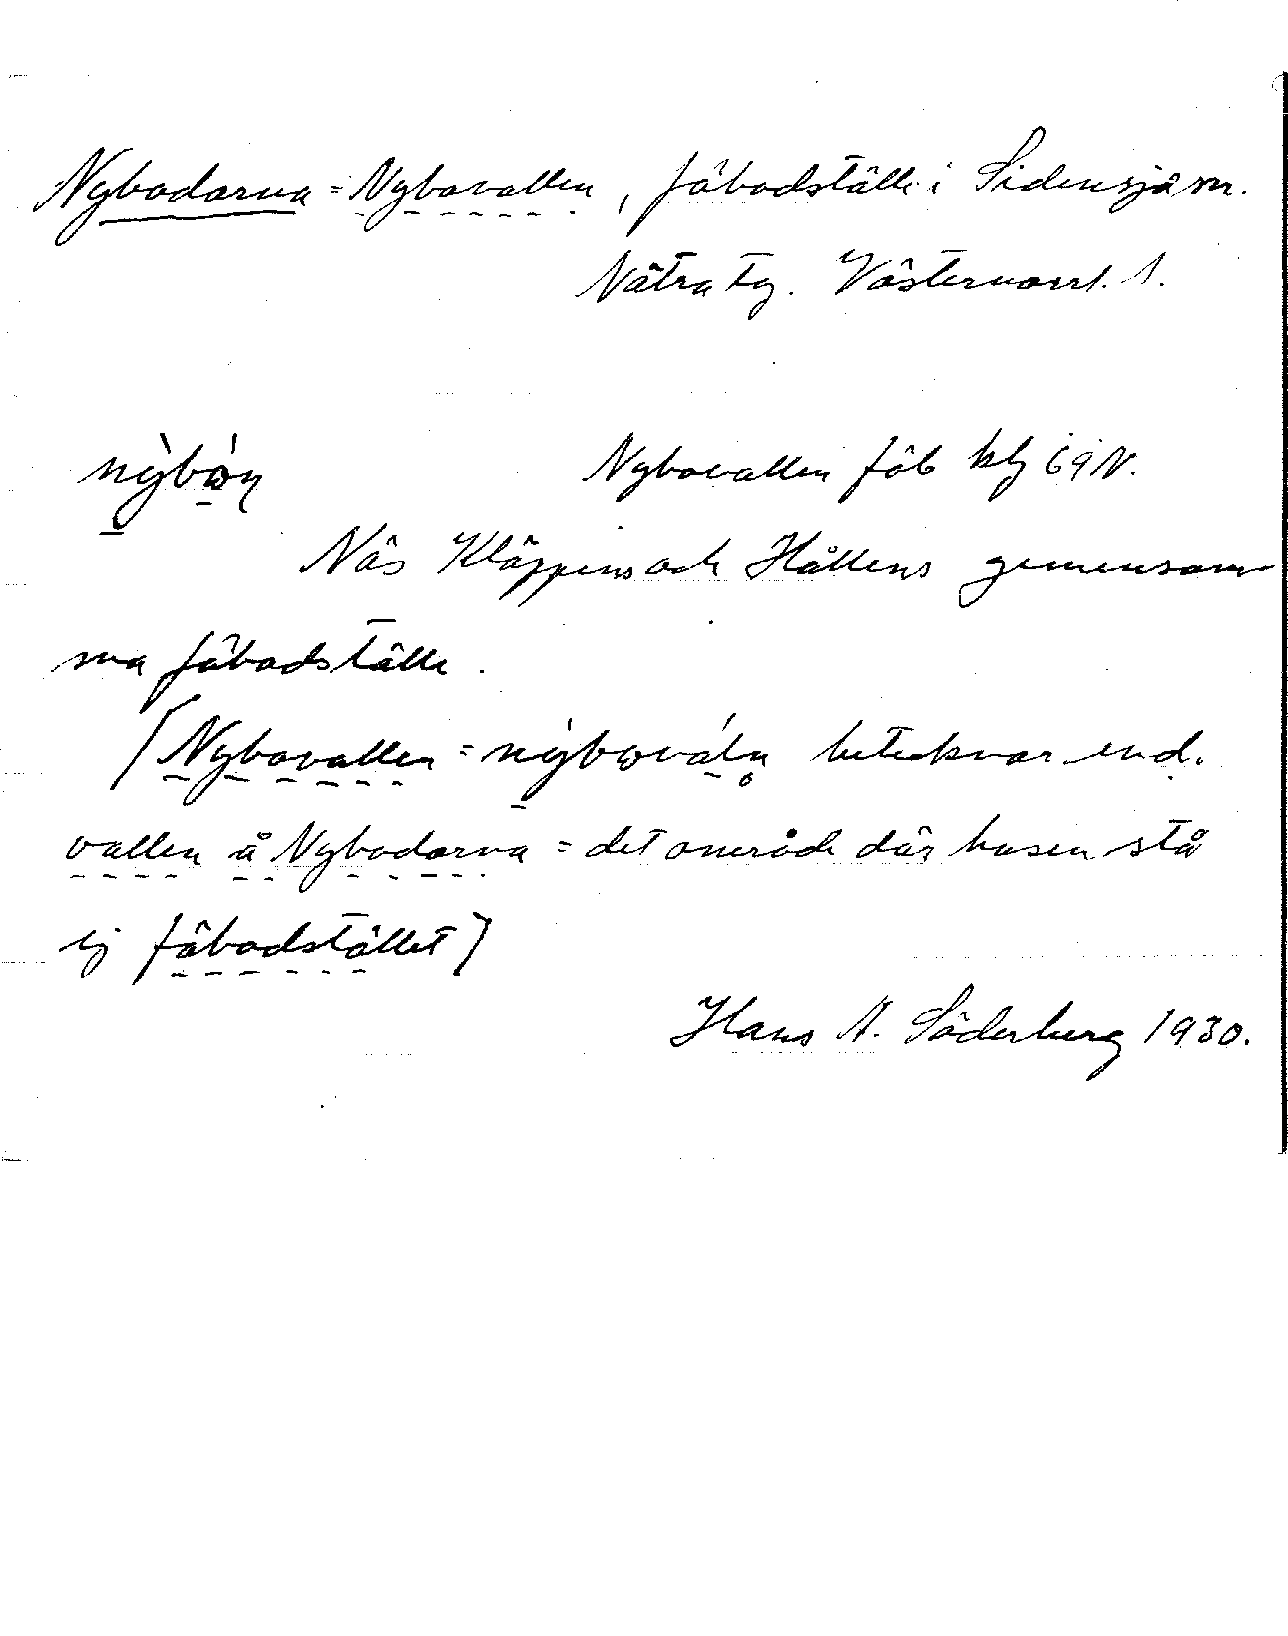 Nybodarna = Nybovallen, fäbodställe i Sidensjö sn.
Nätra tg. Västernorrl. l.
Nybovallen fäb blj 69 N.
Näs Kläppens och Hållens gemensam
ma fäbodställe.
[Nybovallen = betecknar end.
vallen å Nybodarna = det område där husen stå
ej fäbodstället]
Hans A. Söderberg 1930.